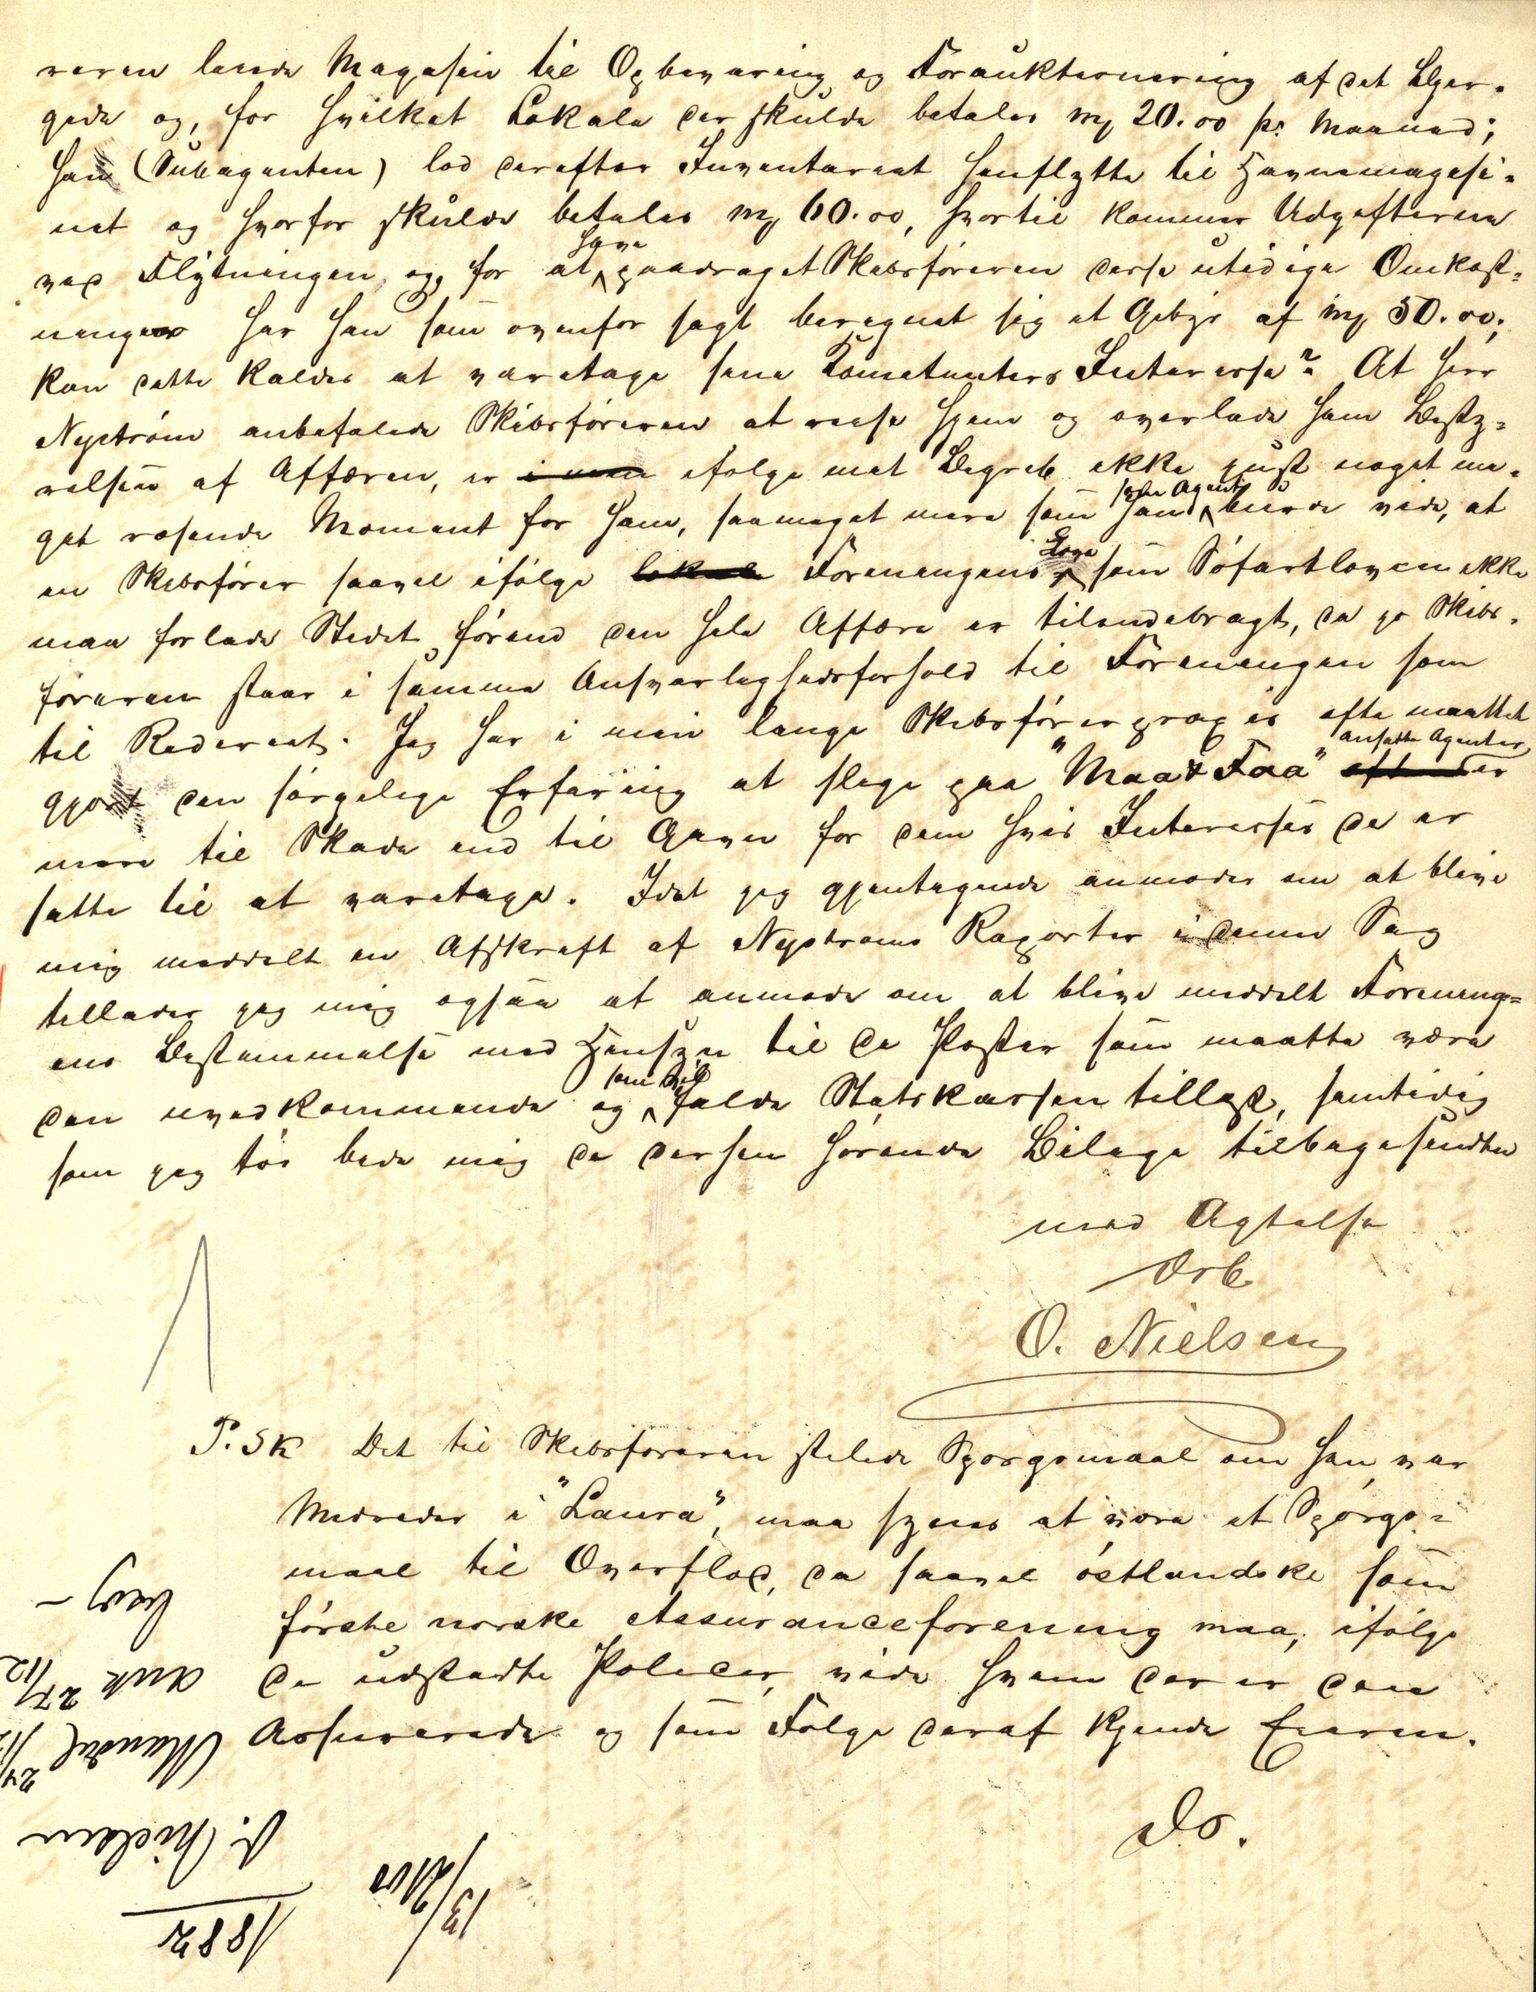 reren leiede Magasin til Opbevaring og Forauktionering af det Bjer-
gede og, for hvilket Lokale der skulde betales mk 20.00 pr Maaned;
han (Subagenten) lod derefter Inventariet henflytte til Havnemagasi-
net og hvorfor skulde betales mk 60.00, hvortil kommer Udgifterne
ved Flytningen, og, for at have paadraget Skibsføreren disse utidige Omkost-
ninger har han som ovenfor sagt beregnet sig et Gebyr af mk 50.00;
kan dette kaldes at varetage sine Komitenters Interesse? At herr
Nyström anbefalede Skibsføreren at reise hjem og overlade ham Besty-
relsen af Affæren, er ifølge mit Begreb ikke just noget me-
get rosende Moment for ham, saameget mere som han som Agent burde vide, at
en Skibsfører saavel ifølge Foreningens Love som Søfartloven ikke
maa forlade Stedet førend den hele Affære er tilendebragt, da jo Skibs-
føreren staar i samme Ansvarlighedsforhold til Foreningen som
til Rederiet. Jeg har i min lange Skibsførerpraxis ofte maattet
gjort den sørgelige Erfaring at slige paa "Maa & Faa" ansatte Agenter, er
mere til Skade end til Gavn for dem hvis Interesser de er
satte til at varetage. Idet jeg gjentagende anmoder om at blive
mig meddelt en Afskrift af Nystrøms Raporter i denne Sag
tillader jeg mig ogsaa at anmode om at blive meddelt Forening-
ens Bestemmelse med Hensyn til de Poster som maatte være
den uvedkommende og som vil falde Statskassen tillast, samtidig
som jeg tør bede mig de dersen hørende Bilage tilbagesendte
med Agtelse
Erb
O. Nielsen
P.Sk Det til Skibsføreren stilede Spørgsmaal om han var
Medreder i "Laura", maa synes at være et Spørgs-
maal til Overflod, da saavel østlandske som
første norske Assuranceforening maa, ifølge
de udstædte Policer, vide hvem der er den
Assurerede og som Følge deraf kjende Eieren.
Ds.
1882
O. Nielsen
Mandal 24/12
Ank 27/12
Besv